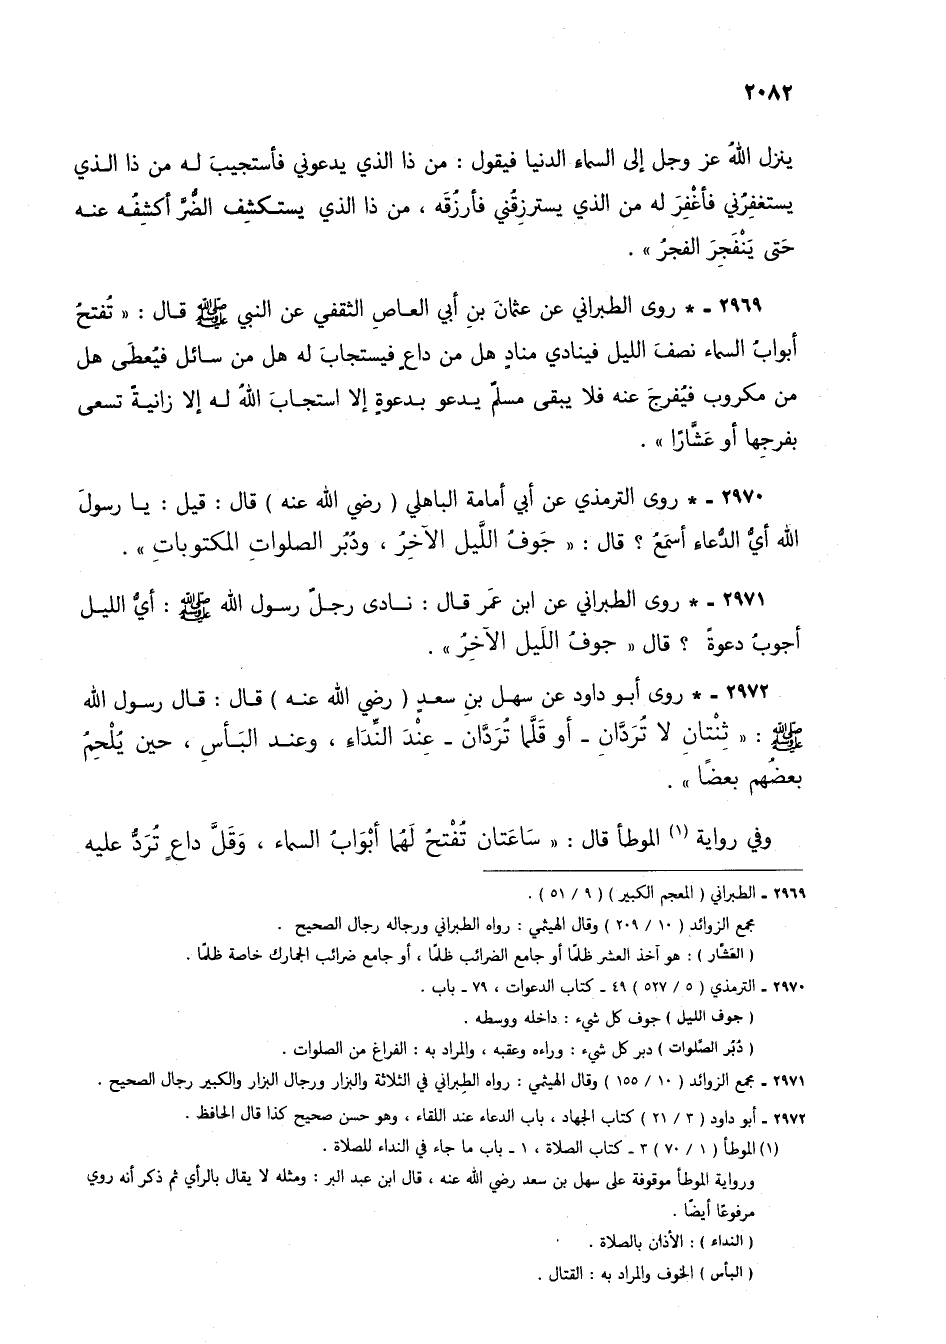 ٢٠٨٢
ينزل اللهُ عز وجل إلى السماء الدنيا فيقول : من ذا الذي يدعوني فأستجيبَ لـه من ذا الـذي
يستغفِرُني فأغْفِرَ له من الذي يسترزقُني فأرزُقَه ، من ذا الذي يستـكشِف الضُّرَّ أكشِفُـه عنـه
حَتى يَنْفَجِرَ الفجرُ » .
٢٩٦٩ ـ * روى الطبراني عن عثمانَ بنِ أبي العـاصِ الثقفي عن النبي ﷺ قـال : « تُفتحُ
أبوابُ السماء نصفَ الليل فينادي منادٍ هل من داعٍ فيستجابَ له هل من سـائل فيُعطَى هل
من مكروب فيُفرجَ عنه فلا يبقى مسلمٌ يـدعو بـدعوةٍ إلا استجـابَ اللهُ لـه إلا زانيـةً تسعى
بفرجِها أو عَشَّارًا » .
٢٩٧٠ ـ * روى الترمذي عن أبي أمامة الباهلي ( رضي الله عنه ) قال : قيل : يـا رسولَ
الله أيُّ الدُّعاء أسمَعُ ؟ قال : « جَوفُ اللَّيل الآخِرُ ، ودُبُر الصلواتِ المكتوباتِ » .
٢٩٧١ ـ * روى الطبراني عن ابن عمَر قـال : نـادى رجـلٌ رسول الله ﷺ : أيُّ الليـل
أجوبُ دعوةً ؟ قال « جوفُ اللَيل الآخِرُ » .
٢٩٧٢ ـ * روى أبـو داود عن سهـل بنِ سعـدٍ ( رضي الله عنـه ) قـال : قـال رسول الله
ﷺ : « ثِنْتانِ لا تُرَدَّانِ ـ أو قَلَّما تُرَدَّان ـ عِنْدَ النِّدَاء ، وعنـد البـأسِ ، حين يُلْحِمُ
بعضُهم بعضًا » .
وفي رواية (١) الموطأ قال : « سَاعَتان تُفْتحُ لَهُما أبْوَابُ السماء ، وَقَلَّ داعٍ تُرَدُّ عليه
٢٩٦٩ ـ الطبراني ( المعجم الكبير ) ( ٩ / ٥١ ) .
مجمع الزوائد ( ١٠ / ٢٠٩ ) وقال الهيثمي : رواه الطبراني ورجاله رجال الصحيح .
( العَشّار ) : هو آخذ العشر ظلمًا أو جامع الضرائب ظلمًا ، أو جامع ضرائب الجمارك خاصة ظلمًا .
٢٩٧٠ ـ الترمذي ( ٥ / ٥٢٧ ) ٤٩ ـ كتاب الدعوات ، ٧٩ ـ باب .
( جوف الليل ) جوف كل شيء : داخله ووسطه .
( دُبُر الصّلوات ) دبر كل شيء : وراءه وعقبه ، والمراد به : الفراغ من الصلوات .
٢٩٧١ ـ مجمع الزوائد ( ١٠ / ١٥٥ ) وقال الهيثمي : رواه الطبراني في الثلاثة والبزار ورجال البزار والكبير رجال الصحيح .
٢٩٧٢ ـ أبو داود ( ٣ / ٢١ ) كتاب الجهاد ، باب الدعاء عند اللقاء ، وهو حسن صحيح كذا قال الحافظ .
(١) الموطأ ( ١ / ٧٠ ) ٣ ـ كتاب الصلاة ، ١ ـ باب ما جاء في النداء للصلاة .
ورواية الموطأ موقوفة على سهل بن سعد رضي الله عنه ، قال ابن عبد البر : ومثله لا يقال بالرأي ثم ذكر أنه روي
مرفوعًا أيضًا .
( النداء ) : الأذان بالصلاة .
( البأس ) الخوف والمراد به : القتال .